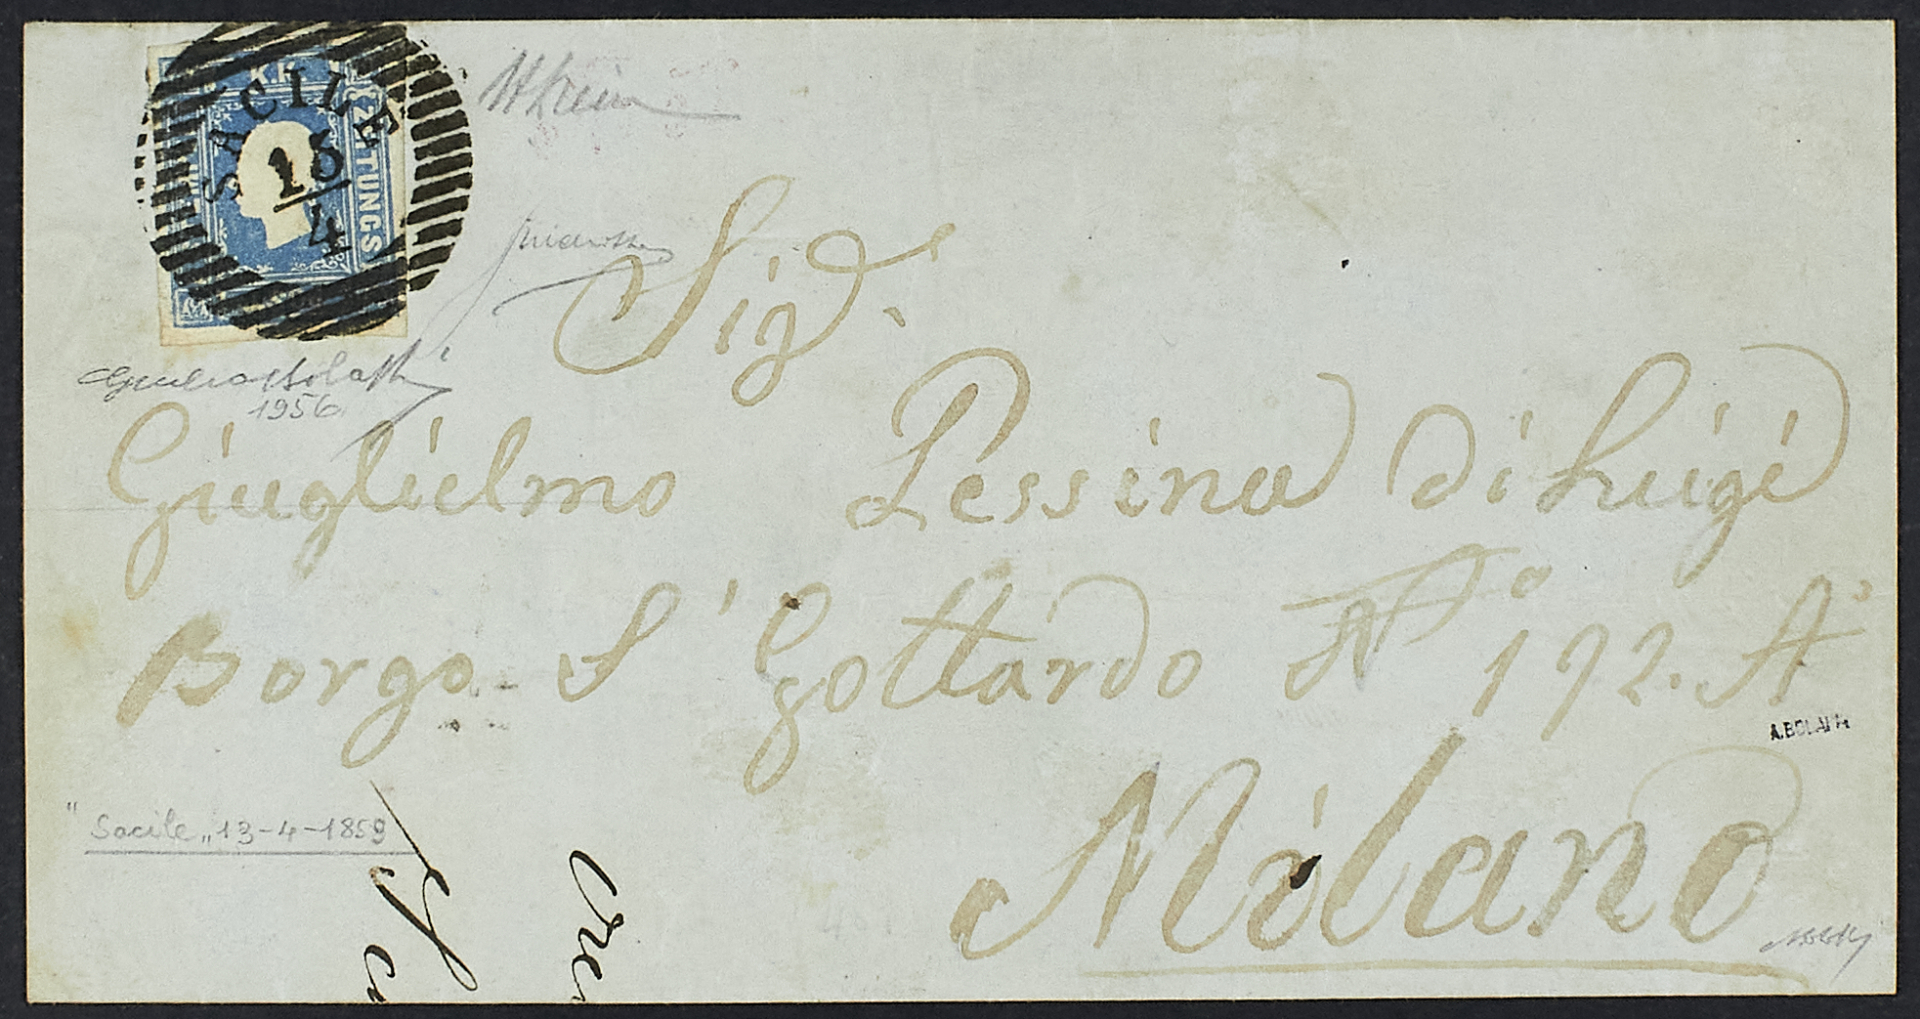 K.K.
ZEITUNGS
SACILE
13
4
Sig.r
Giuglielmo Pessina di Luigi
Borgo S' Gottardo N° 192. A'
Milano
1956
A.BOLAFFI
"Sacile" 13-4-1859